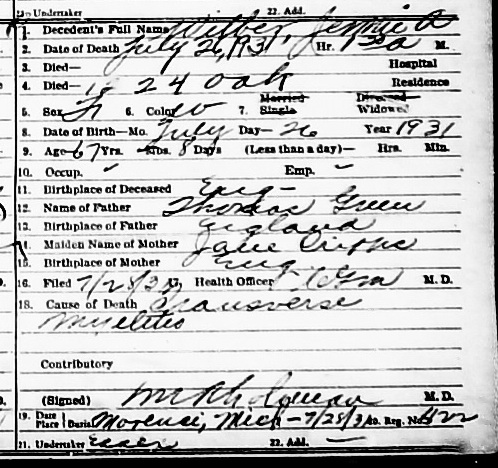 21. Undertaker 22. Add.
1. Decedent's Full Name Wilber, Jennie A
2. Date of Death July 26, 1931 Hr. 130 a M.
3. Died— Hospital
4. Died— 1824 Oak Residence
5. Sex F 6. Color W 7. Married Single Divorced Widowed
8. Date of Birth—Mo. July Day— 26 Year 1931
9. Age 67 Yrs. Mos. 8 Days (Less than a day)— Hrs. Min.
10. Occup. Emp. –
11. Birthplace of Deceased Eng–
12. Name of Father Thomas Green
13. Birthplace of Father England
14. Maiden Name of Mother Jane
15. Birthplace of Mother Eng
16. Filed 7/28/31 17. Health Officer M. D.
18. Cause of Death Transverse
Myelitis
Contributory
(Signed) M. D.
19. Date Place Burial Morenci, Mich – 7/28/31 20. Reg. No.
21. Undertaker 22. Add. –